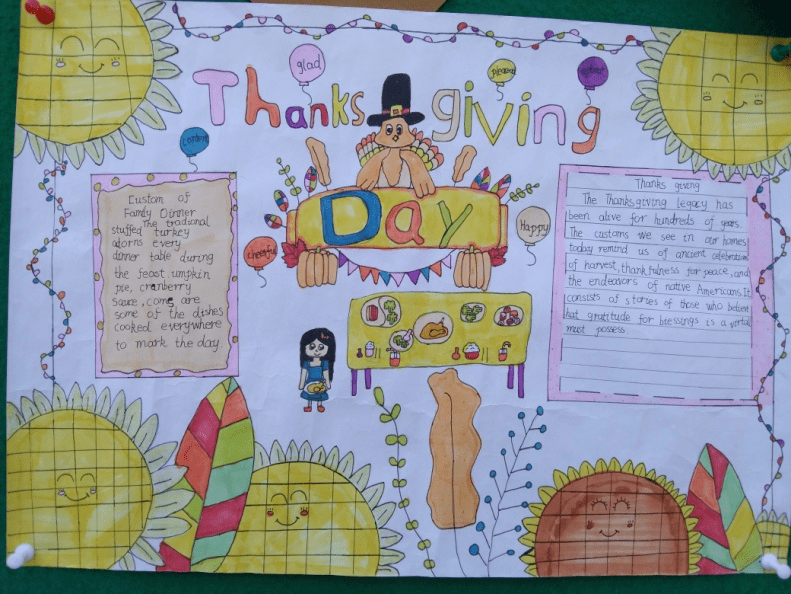 glad
pleased
Thanks giving
content
Custom of
Family Dinner
The tradional
stuffed turkey
adorns every
dinner table during
the feast umpkin
pie, cranberry
sauce, come are
some of the dishes
cooked everywhere
to mark the day
Day
cheerful
Happy
Thanks giving
The Thanksgiving legacy has
been alive for hundreds of years.
The customs we see in our homes
today remind us of ancient celebration
of harvest, thankfulness for peace, and
the endeavors of native Americans. It
consists of stories of those who believe
hat gratitude for bressings is a
must possess.